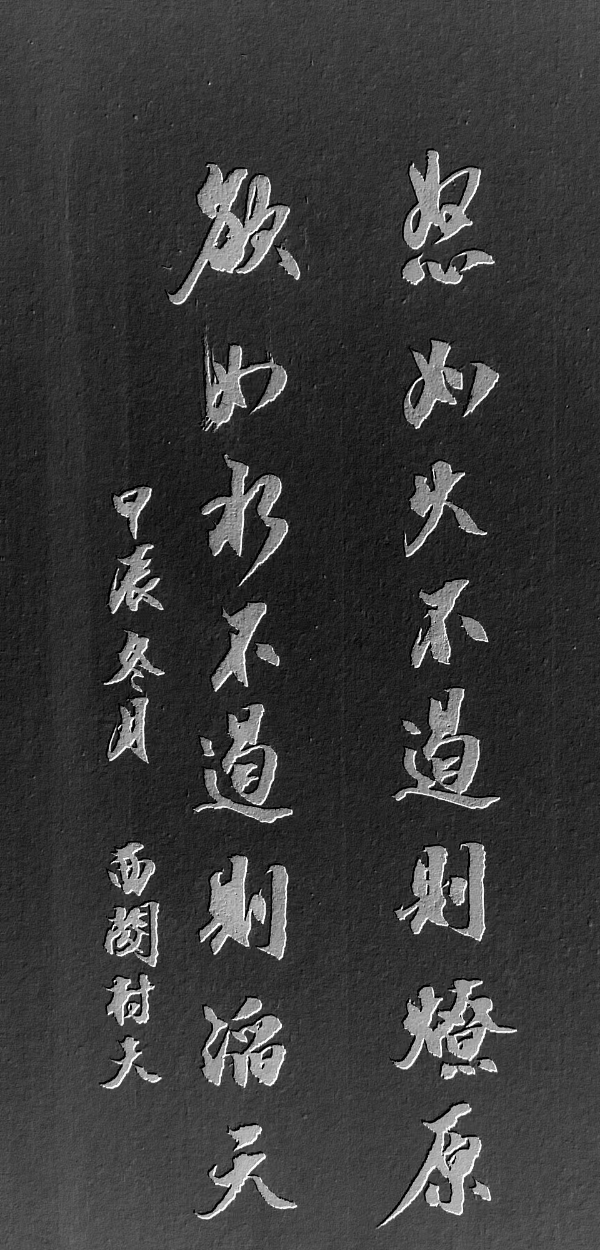 怒如火不遏則燎原
欲如水不遏則滔天
甲辰冬月 西關村夫